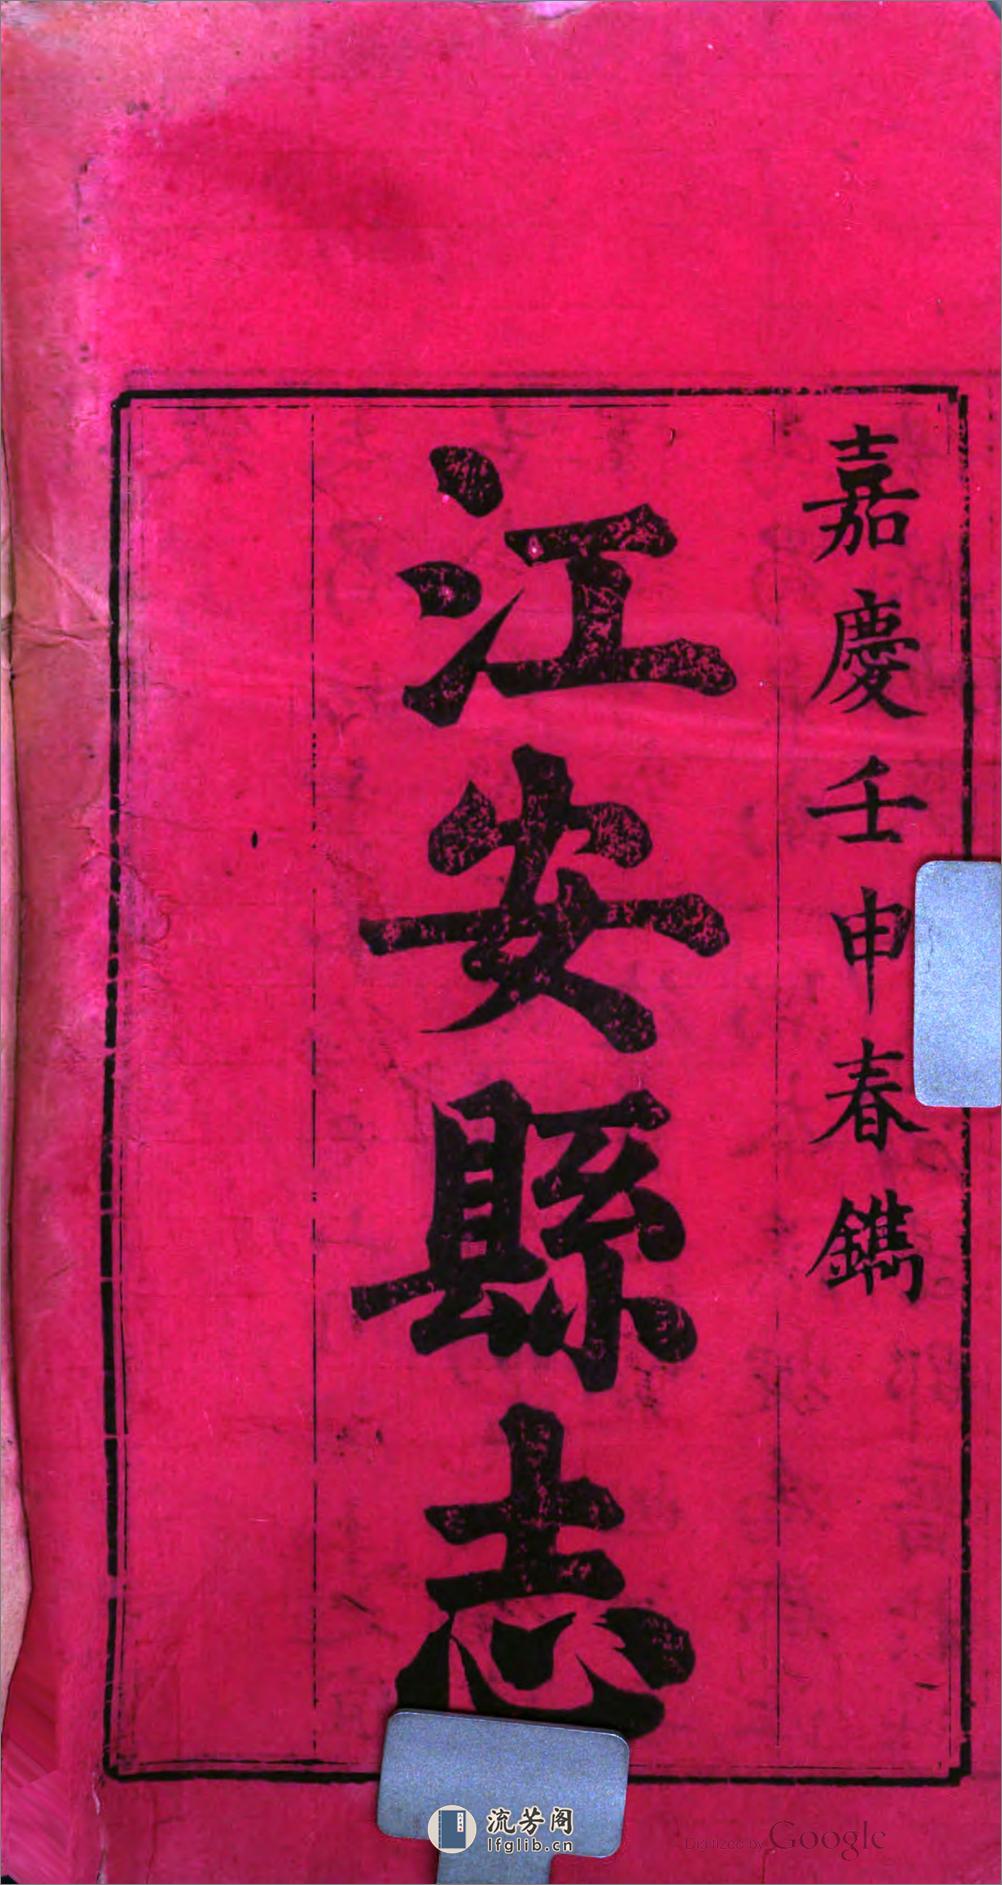 嘉慶壬申春鐫
江安縣志
流芳阁
lfglib.cn
Digitized by Google